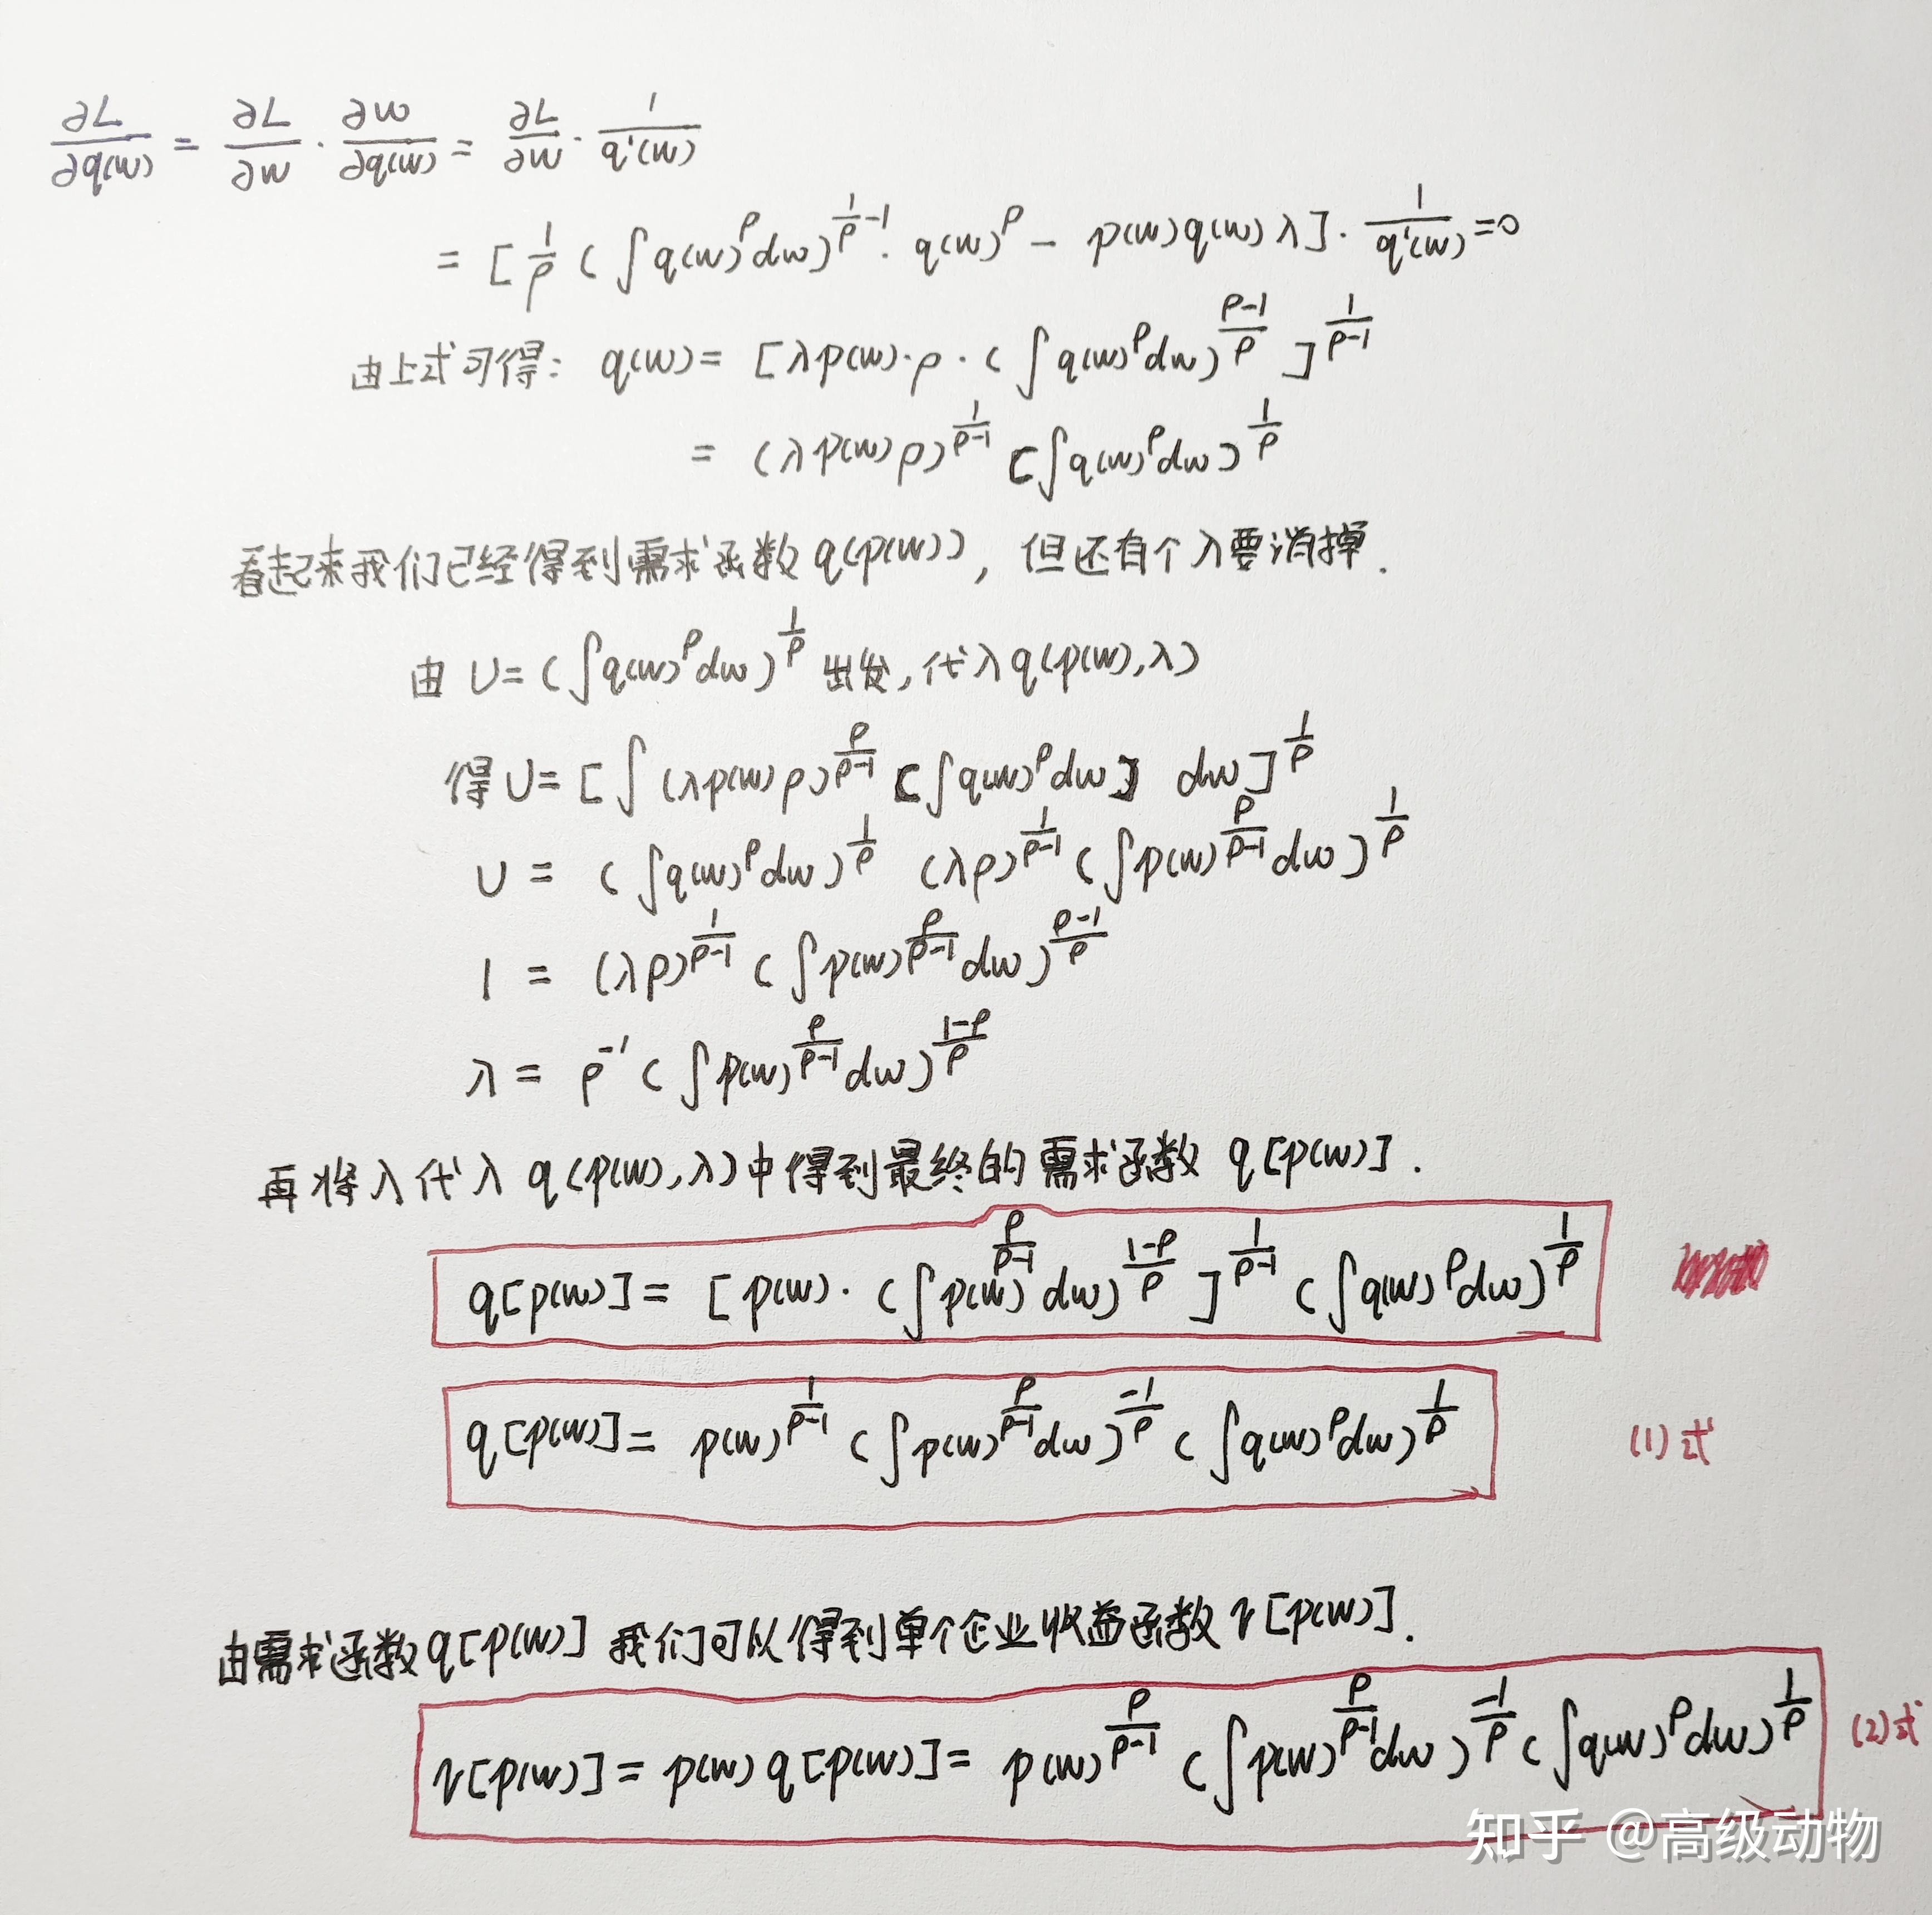 ∂L/∂q(w) = ∂L/∂w · ∂w/∂q(w) = ∂L/∂w · 1/q'(w)
= [1/ρ (∫q(w)^ρ dw)^(1/ρ -1) · q(w)^ρ - p(w)q(w)λ] · 1/q'(w) =0
由上式可得: q(w)= [λp(w)·ρ·(∫q(w)^ρ dw)^((ρ-1)/ρ)]^(1/(ρ-1))
= (λp(w)ρ)^(1/(ρ-1)) [∫q(w)^ρ dw)^(1/ρ)
看起来我们已经得到需求函数q(p(w)), 但还有个λ要消掉.
由 U=(∫q(w)^ρ dw)^(1/ρ) 出发,代入q(p(w),λ)
得 U= [∫(λp(w)ρ)^(ρ/(ρ-1)) [∫q(w)^ρ dw] dw]^(1/ρ)
U = (∫q(w)^ρ dw)^(1/ρ) (λρ)^(1/(ρ-1)) (∫p(w)^(ρ/(ρ-1)) dw)^(1/ρ)
1 = (λρ)^(1/(ρ-1)) (∫p(w)^(ρ/(ρ-1)) dw)^((ρ-1)/ρ)
λ = ρ^-1 (∫p(w)^(ρ/(ρ-1)) dw)^((1-ρ)/ρ)
再将λ代入 q(p(w),λ)中得到最终的需求函数 q[p(w)].
q[p(w)]= [p(w)·(∫p(w)^(ρ/(ρ-1)) dw)^((1-ρ)/ρ)]^(1/(ρ-1)) (∫q(w)^ρ dw)^(1/ρ)
q[p(w)]= p(w)^(1/(ρ-1)) (∫p(w)^(ρ/(ρ-1)) dw)^(-1/ρ) (∫q(w)^ρ dw)^(1/ρ) (1)式
由需求函数q[p(w)] 我们可以得到单个企业收益函数r[p(w)].
r[p(w)]= p(w)q[p(w)]= p(w)^(ρ/(ρ-1)) (∫p(w)^(ρ/(ρ-1)) dw)^(-1/ρ) (∫q(w)^ρ dw)^(1/ρ) (2)式
知乎 @高级动物